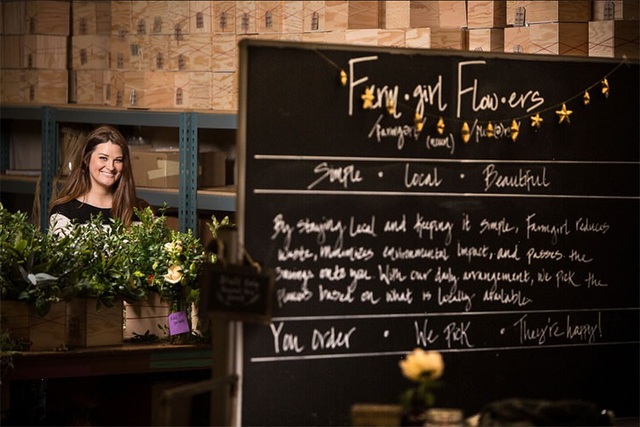 Farm•girl Flow•ers
/farmgərl (noun)
Simple • Local • Beautiful
By staying local and keeping it simple, Farmgirl reduces
waste, minimizes environmental impact, and passes the
savings onto you. With our daily arrangement, we pick the
flowers based on what is locally available.
You Order • We Pick • They're happy!